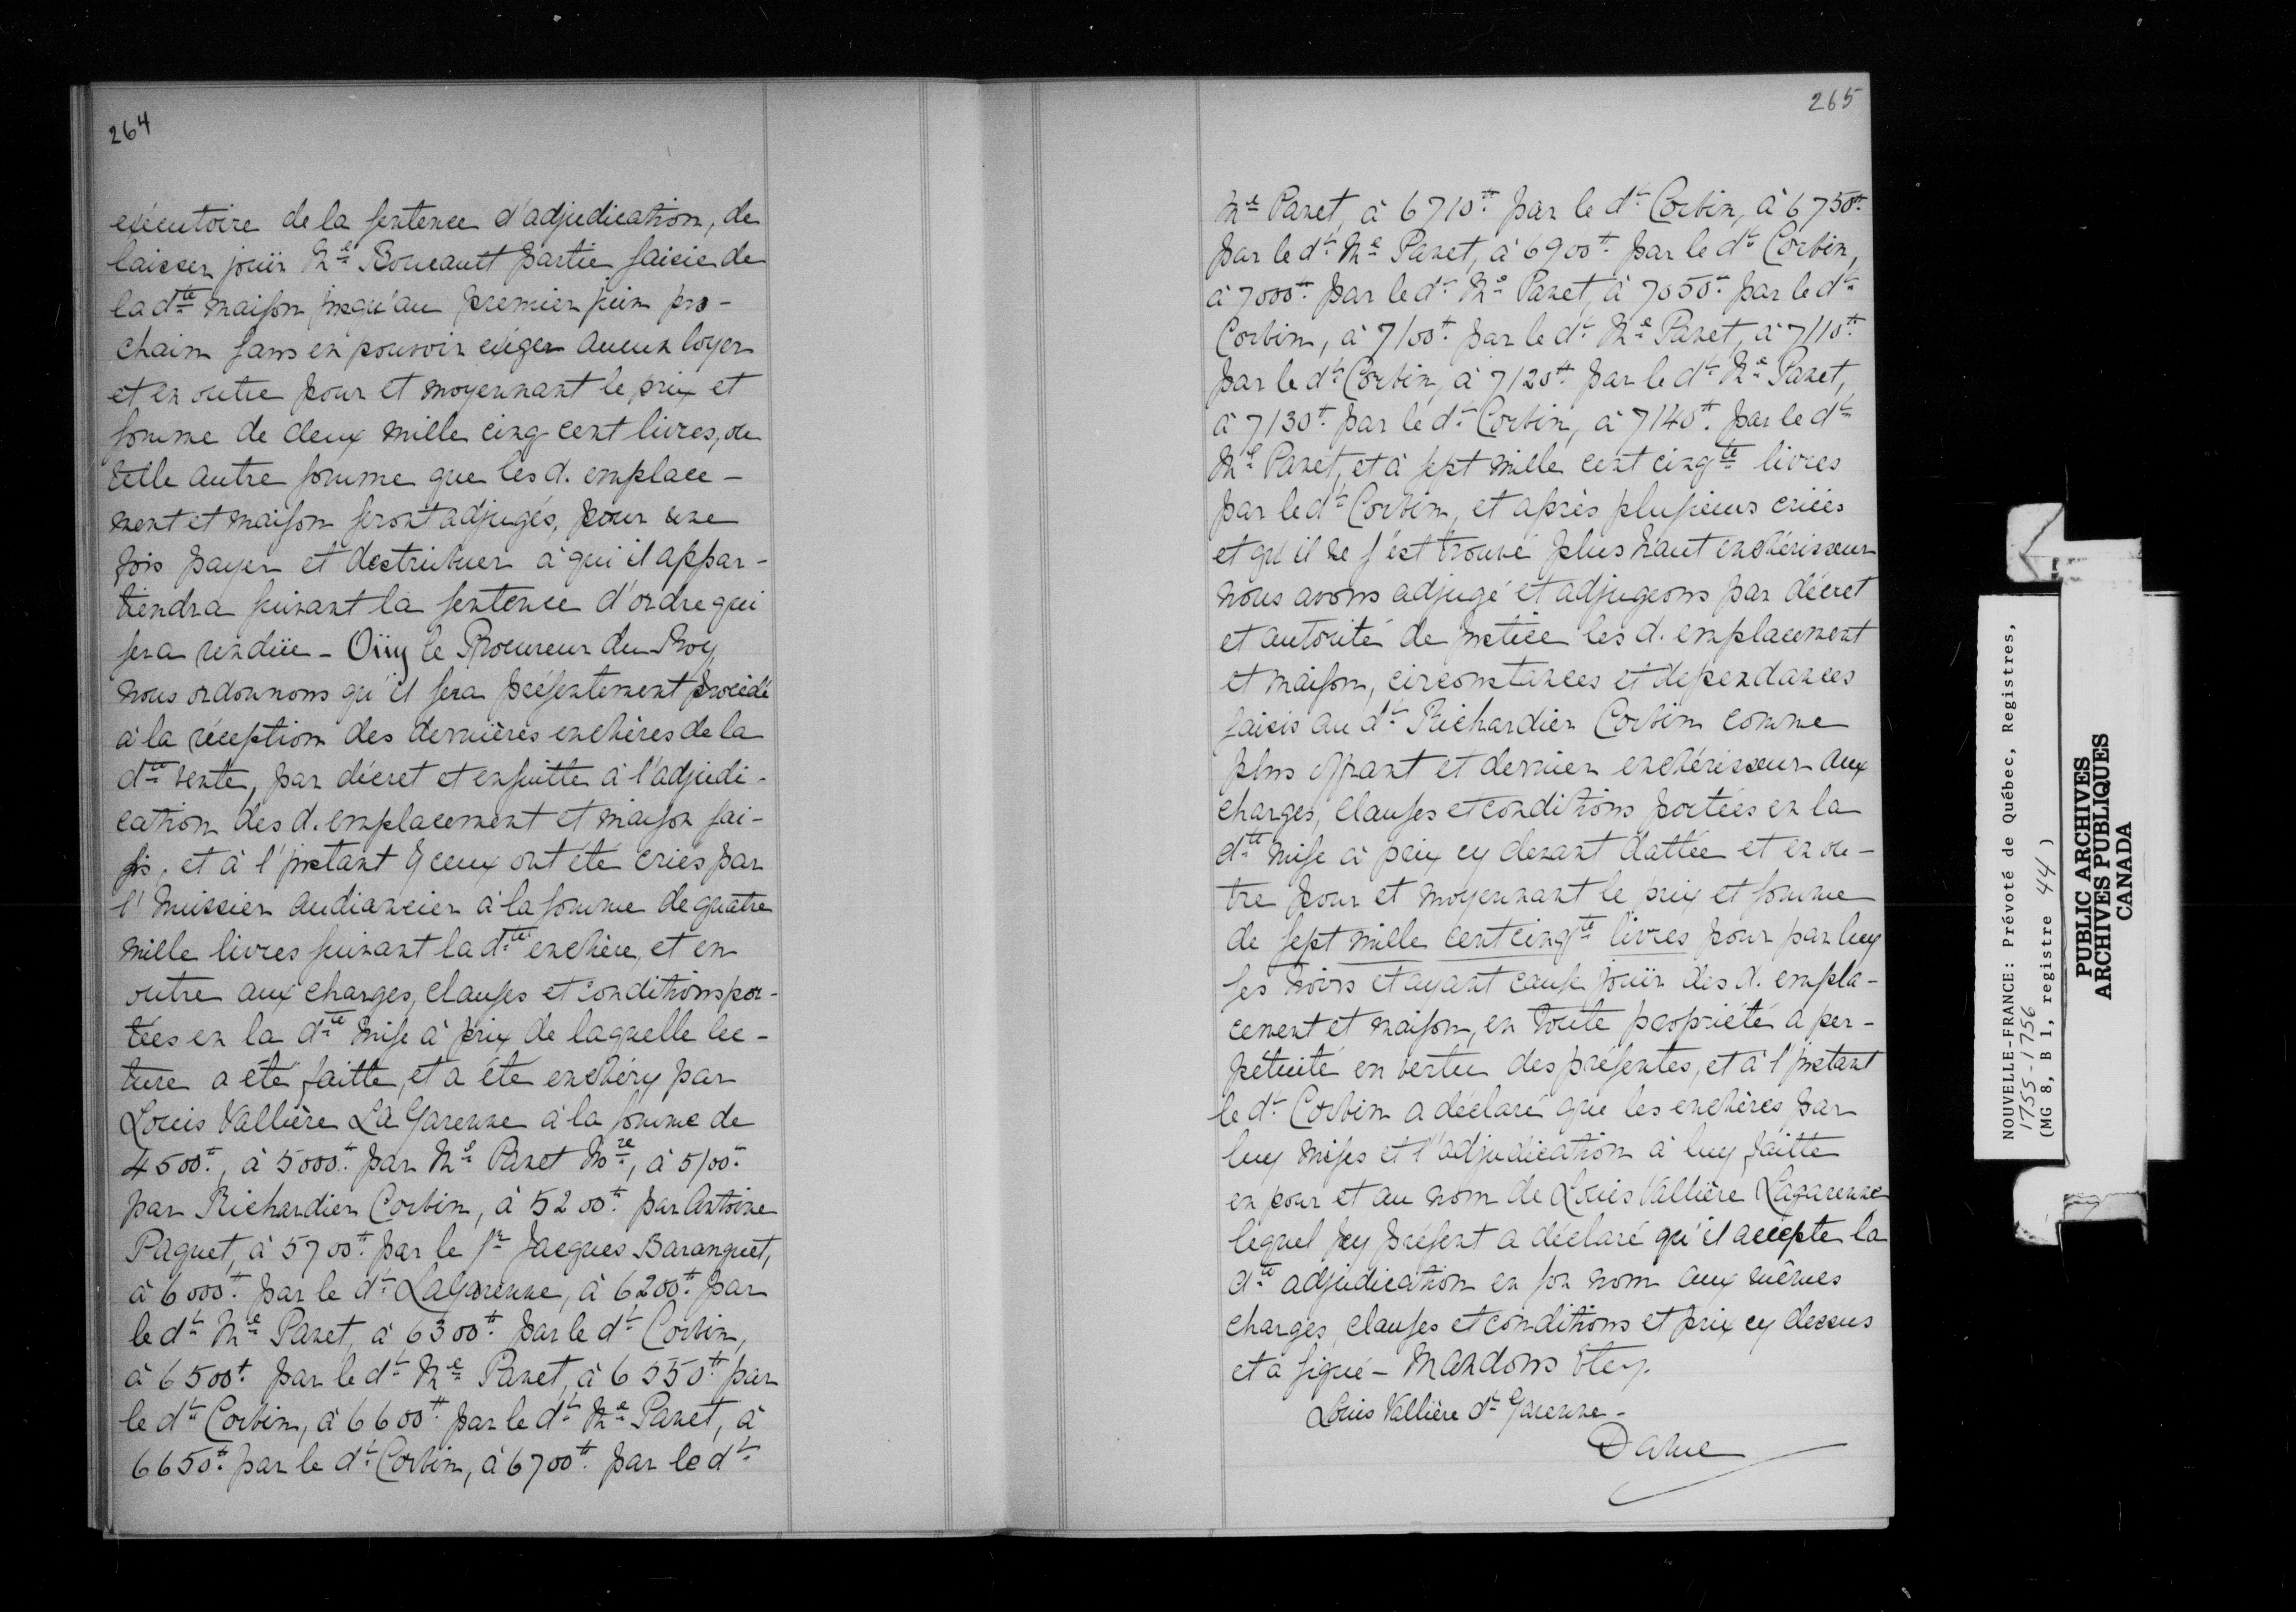 264
exécutoire de la sentence d'adjudication, de
laisser jouir Me Boucault partie saisie de
la dte maison jusqu'au premier juin pro-
chain sans en pouvoir exiger aucun loyer
et en outre pour et moyennant le prix et
somme de deux mille cinq cent livres, ou
telle autre somme que les d. emplace-
ment et maison seront adjugés, pour une
fois payer et destribuer à qui il appar-
tiendra suivant la sentence d'ordre qui
sera rendüe - Oüy le Procureur du Roy
nous ordonnons qu'il sera présentement procédé
à la réception des dernières enchères de la
dte vente, par décret et ensuitte à l'adjudi-
cation des d. emplacement et maison sai-
sis, et à l'instant yceux ont été criés par
l'huissier audiancier à la somme de quatre
mille livres suivant la dte enchère, et en
outre aux charges, clauses et conditions por-
tées en la dte mise à prix de laquelle lec-
ture a été faitte, et a été enchéry par
Louis Vallière La Garenne à la somme de
4500tt, à 5000tt par Me Panet Nre, à 5100tt
par Richardier Corbin, à 5200tt par Antoine
Paquet, à 5700tt par le sr Jacques Baranguet,
à 6000tt par le dt LaGarenne, à 6200tt par
le dt Me Panet, à 6300tt par le dt Corbin,
à 6500tt par le dt Me Panet, à 6550tt par
le dt Corbin, à 6600tt par le dt Me Panet, à
6650tt par le dt Corbin, à 6700tt par le dt
265
Me Panet, à 6710tt par le dt Corbin, à 6750tt
par le dt Me Panet, à 6900tt par le dt Corbin,
à 7000tt par le dt Me Panet, à 7050tt par le dt
Corbin, à 7100tt par le dt Me Panet, à 7110tt
par le dt Corbin, à 7120tt par le dt Me Panet,
à 7130tt par le dt Corbin, à 7140tt par le dt
Me Panet, et à sept mille cent cinqte livres
par le dt Corbin, et après plusieurs criées
et qu'il ne s'est trouvé plus haut enchérisseur
nous avons adjugé et adjugeons par décret
et autorité de justice les d. emplacement
et maison, circonstances et dependances
saisis au dt Richardier Corbin comme
plus offrant et dernier enchérisseur aux
charges, clauses et conditions portées en la
dte mise à prix cy devant dattée et en ou-
tre pour et moyennant le prix et somme
de sept mille cent cinqte livres pour par luy
ses hoirs et ayant cause jouir des d. empla-
cement et maison, en toute propriété à per-
pétuité en vertu des présentes, et à l'instant
le dt Corbin a déclaré que les enchères par
luy mises et l'adjudication à luy faitte
en pour et au nom de Louis Vallière Lagarenne
lequel icy présent a déclaré qu'il accepte la
dte adjudication en son nom aux mêmes
charges, clauses et conditions et prix cy dessus
et a signé - Mandons &tc.
Louis Vallière dt Garenne -
Daine
NOUVELLE-FRANCE: Prévoté de Québec, Registres,
1755-1756
(MG 8, B 1, registre 44)
PUBLIC ARCHIVES
ARCHIVES PUBLIQUES
CANADA